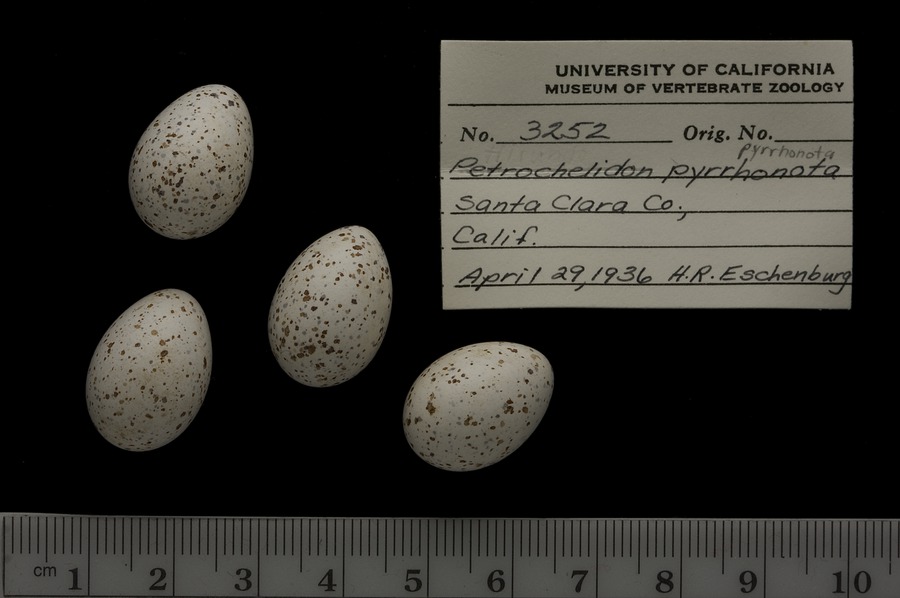 UNIVERSITY OF CALIFORNIA
MUSEUM OF VERTEBRATE ZOOLOGY
No. 3252 Orig. No.
pyrrhonota
Petrochelidon pyrrhonota
Santa Clara Co.,
Calif.
April 29, 1936 H.R. Eschenburg
cm 1 2 3 4 5 6 7 8 9 10